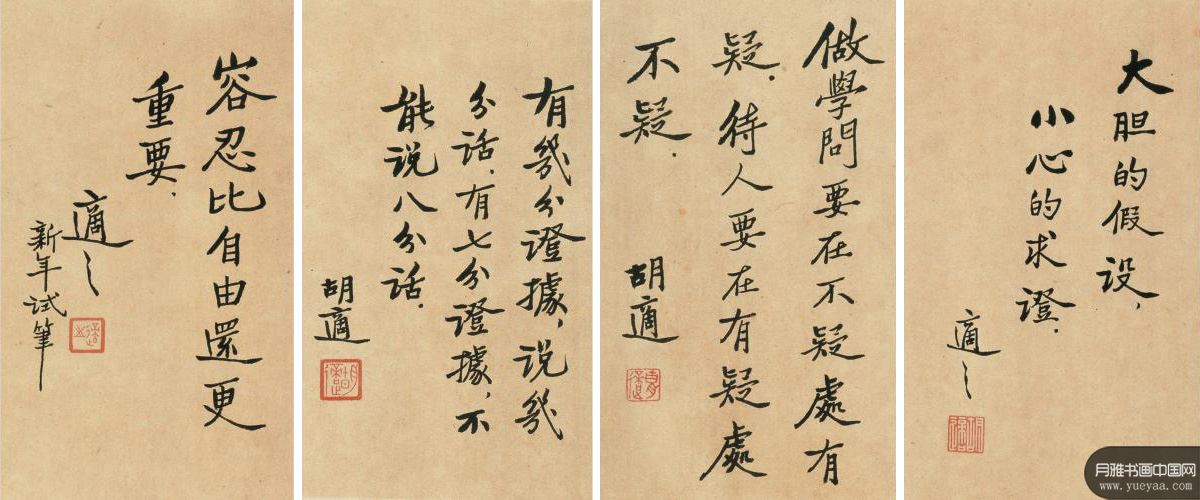 大胆的假设，
小心的求證．
適之
做學問要在不疑處有
疑．待人要在有疑處
不疑．
胡適
有幾分證據，说幾
分话．有七分證據，不
能说八分话．
胡適
容忍比自由還更
重要．
適之
新年试筆
月雅书画中国网
www.yueyaa.com